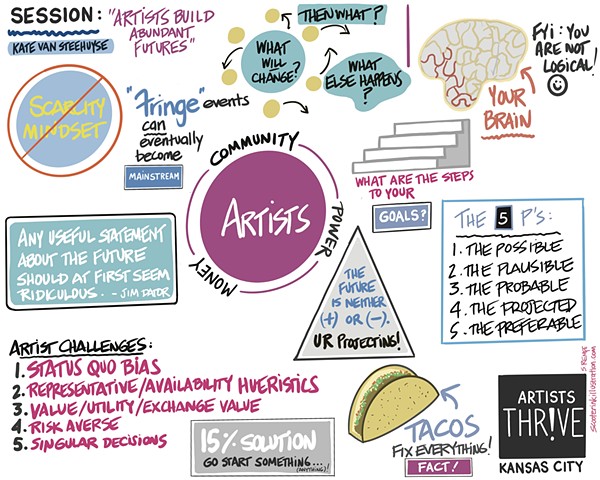 SESSION:
"ARTISTS BUILD
ABUNDANT
FUTURES"
KATE VAN STEEHUYSE
THEN WHAT?
WHAT
WILL
CHANGE?
WHAT
ELSE HAPPENS
?
FYI: YOU
ARE NOT
LOGICAL!
YOUR
BRAIN
SCARCITY
MINDSET
"Fringe" events
can
eventually
become
MAINSTREAM
COMMUNITY
POWER
MONEY
ARTISTS
WHAT ARE THE STEPS
TO YOUR
GOALS?
ANY USEFUL STATEMENT
ABOUT THE FUTURE
SHOULD AT FIRST SEEM
RIDICULOUS. - JIM DATOR
THE
FUTURE
IS NEITHER
(+) OR (-).
UR PROJECTING!
THE 5 P'S:
1. THE POSSIBLE
2. THE PLAUSIBLE
3. THE PROBABLE
4. THE PROJECTED
5. THE PREFERABLE
ARTIST CHALLENGES:
1. STATUS QUO BIAS
2. REPRESENTATIVE/AVAILABILITY HUERISTICS
3. VALUE/UTILITY/EXCHANGE VALUE
4. RISK AVERSE
5. SINGULAR DECISIONS
15% SOLUTION
GO START SOMETHING...
(ANYTHING)!
TACOS
FIX EVERYTHING!
FACT!
ARTISTS
THR!VE
KANSAS CITY
scooterinkillustration.com